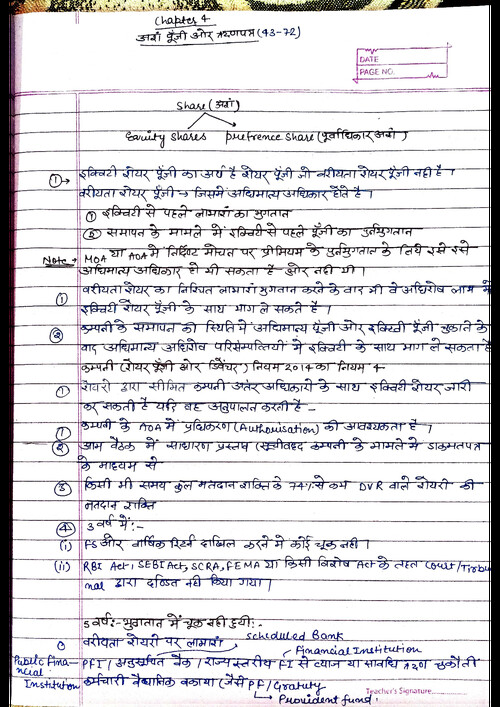 Chapter 4
अंश पूँजी और ऋणपत्र (43-72)
DATE
PAGE NO.
Share (अंश)
Equity shares prefrence share (पूर्वाधिकार अंश)
① → इक्विटी शेयर पूँजी का अर्थ है शेयर पूँजी जो वरीयता शेयर पूँजी नहीं है।
वरीयता शेयर पूँजी → जिसमे अधिमान्य अधिकार होते है।
① इक्विटी से पहले लाभांश का भुगतान
② समापन के मामले में इक्विटी से पहले पूँजी का पुर्नभुगतान
Note → MOA या AOA में निर्दिष्ट मोचन पर प्रीमियम के पुर्नभुगतान के लिये इसे इसे
अधिमान्य अधिकार हो भी सकता है और नही भी।
① वरीयता शेयर का निश्चित लाभांश भुगतान करने के बाद भी वे अधिशेष लाभ में
इक्विटी शेयर पूँजी के साथ भाग ले सकते है।
② कम्पनी के समापन की स्थिति में अधिमान्य पूँजी और इक्विटी पूँजी चुकाने के
बाद अधिमान्य अधिशेष परिसम्पत्तियों में इक्विटी के साथ भाग ले सकता है
कम्पनी (शेयर पूँजी और डिबेंचर) नियम 2014 का नियम 4
① शेयरो द्वारा सीमित कम्पनी अंतर अधिकारो के साथ इक्विटी शेयर जारी
कर सकती है यदि वह अनुपालन करती है -
① कम्पनी के AOA में प्राधिकरण (Authorisation) की आवश्यकता है।
② आम बैठक में साधारण प्रस्ताव (सूचीबद्ध कम्पनी के मामले में डाकमतपत्र
के माध्यम से
③ किसी भी समय कुल मतदान शक्ति के 74% से कम DVR वाले शेयरो की
मतदान शक्ति
④ 3 वर्ष में :-
(i) FS और वार्षिक रिटर्न दाखिल करने में कोई चूक नही।
(ii) RBI Act, SEBI Act, SCRA, FEMA या किसी विशेष Act के तहत Court/Tribu
nal द्वारा दण्डित नही किया गया।
5 वर्ष :- भुगतान में चूक नही हुयी :-
वरीयता शेयरो पर लाभांश Scheduled Bank
Financial Institution
Public Financial Institution PFI / अनुसूचित बैंक / राज्य स्तरीय FI से ब्याज या सावधि ऋण चुकौती
कर्मचारी वैधानिक बकाया (जैसे PF / Gratuty
→ Provident fund.
Teacher's Signature